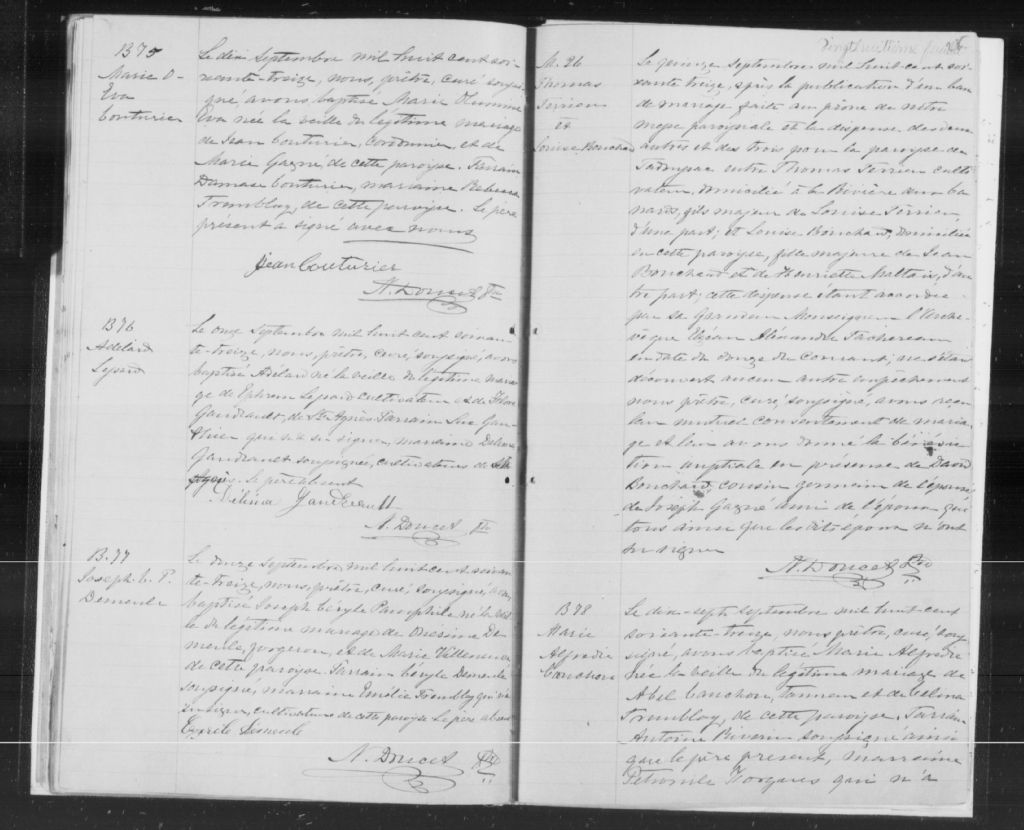 B75
Marie O-
Eva
Couturier
Le dix Septembre mil huit cent soi-
xante-treize, nous, prêtre, curé soussi-
gné, avons baptisé Marie
Eva née la veille du légitime mariage
de Jean Couturier, cordonnier, et de
Marie Gagné de cette paroisse. Parrain
Damase Couturier, marraine Rebecca
Tremblay, de cette paroisse. Le père
présent a signé avec nous
Jean Couturier
N. Doucet Ptre
B76
Adélard
Lepard
Le onze Septembre mil huit cent soixan-
te-treize, nous, prêtre, curé, soussigné, avons
baptisé Adélard né la veille du légitime maria-
ge de Ephrem Lepard cultivateur et de Flore
Gaudreault, de Ste Agnès. Parrain Luc Gau-
thier qui n'a su signer, marraine
Gaudreault soussignée, cultivateurs de Ste
Agnès. Le père absent
Gaudreault
N. Doucet Ptre
B.77
Joseph C. P.
Demeule
Le douze Septembre mil huit cent soixan-
te-treize, nous, prêtre, curé, soussigné, avons
baptisé Joseph Céryle né la veil-
le du légitime mariage de Onésime De-
meule, forgeron, et de Marie Villeneuve
de cette paroisse. Parrain Céryle Demeule
soussigné, marraine Emélie Tremblay qui n'a
su signer, cultivateurs de cette paroisse Le père absent
N. Doucet Ptre
Vingt huitième
M. 26
Thomas
Terrien
et
Louise Bouchard
Le quinze Septembre mil huit cent soi-
xante treize, après la publication d'un ban
de mariage faite au prône de notre
messe paroissiale et la dispense des deux
autres et des trois pour la paroisse de
Tadoussac entre Thomas Terrien culti-
vateur, domicilié à la Rivière aux Ca-
nards, fils majeur de Louise Terrien,
d'une part; et Louise Bouchard, domiciliée
en cette paroisse, fille majeure de Jean
Bouchard et de Henriette Maltais, d'au-
tre part; cette dispense étant accordée
par Sa Grandeur Monseigneur l'Arche-
vêque Elzéar Alexandre Taschereau
en date du douze du courant; ne s'étant
découvert aucun autre empêchement
nous prêtre, curé, soussigné, avons reçu
leur mutuel consentement de maria-
ge et leur avons donné la bénédic-
tion nuptiale en présence de David
Bouchard, cousin germain de l'épouse
de Joseph Gagné ami de l'époux qui
tous ainsi que les dits époux n'ont
su signer
N. Doucet Ptre
B78
Marie
Alfredie
Cauchon
Le dix-sept septembre mil huit cent
soixante-treize, nous, prêtre, curé, sous-
signé, avons baptisé Marie Alfredie
née la veille du légitime mariage de
Abel Cauchon, tanneur et de Célina
Tremblay, de cette paroisse. Parrain
Antoine Riverin soussigné ainsi
que le père présent, marraine
Pétronile qui n'a